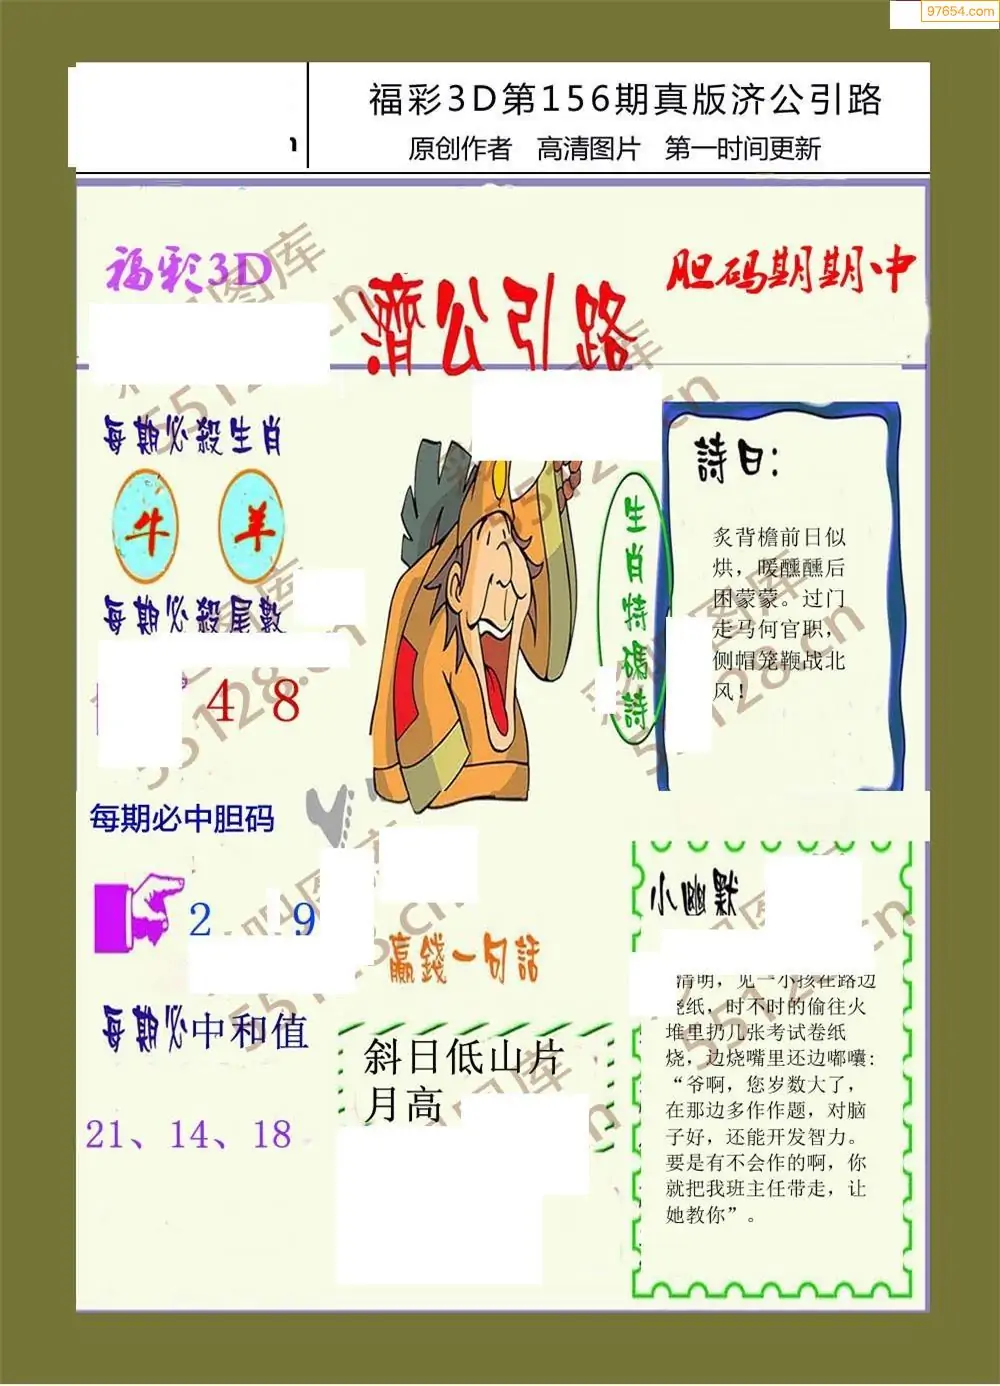 97654.com
福彩3D第156期真版济公引路
原创作者 高清图片 第一时间更新
福彩3D
濟公引路
胆码期期中
每期必殺生肖
牛 羊
每期必殺尾數
4 8
每期必中胆码
2 9
每期必中和值
21、14、18
生肖特碼詩
詩曰:
炙背檐前日似
烘，暖醺醺后
困蒙蒙。过门
走马何官职，
侧帽笼鞭战北
风！
贏錢一句話
斜日低山片
月高
小幽默
清明，见一小孩在路边
烧纸，时不时的偷往火
堆里扔几张考试卷纸
烧，边烧嘴里还边嘟囔:
“爷啊，您岁数大了，
在那边多作作题，对脑
子好，还能开发智力。
要是有不会作的啊，你
就把我班主任带走，让
她教你”。
55128.cn